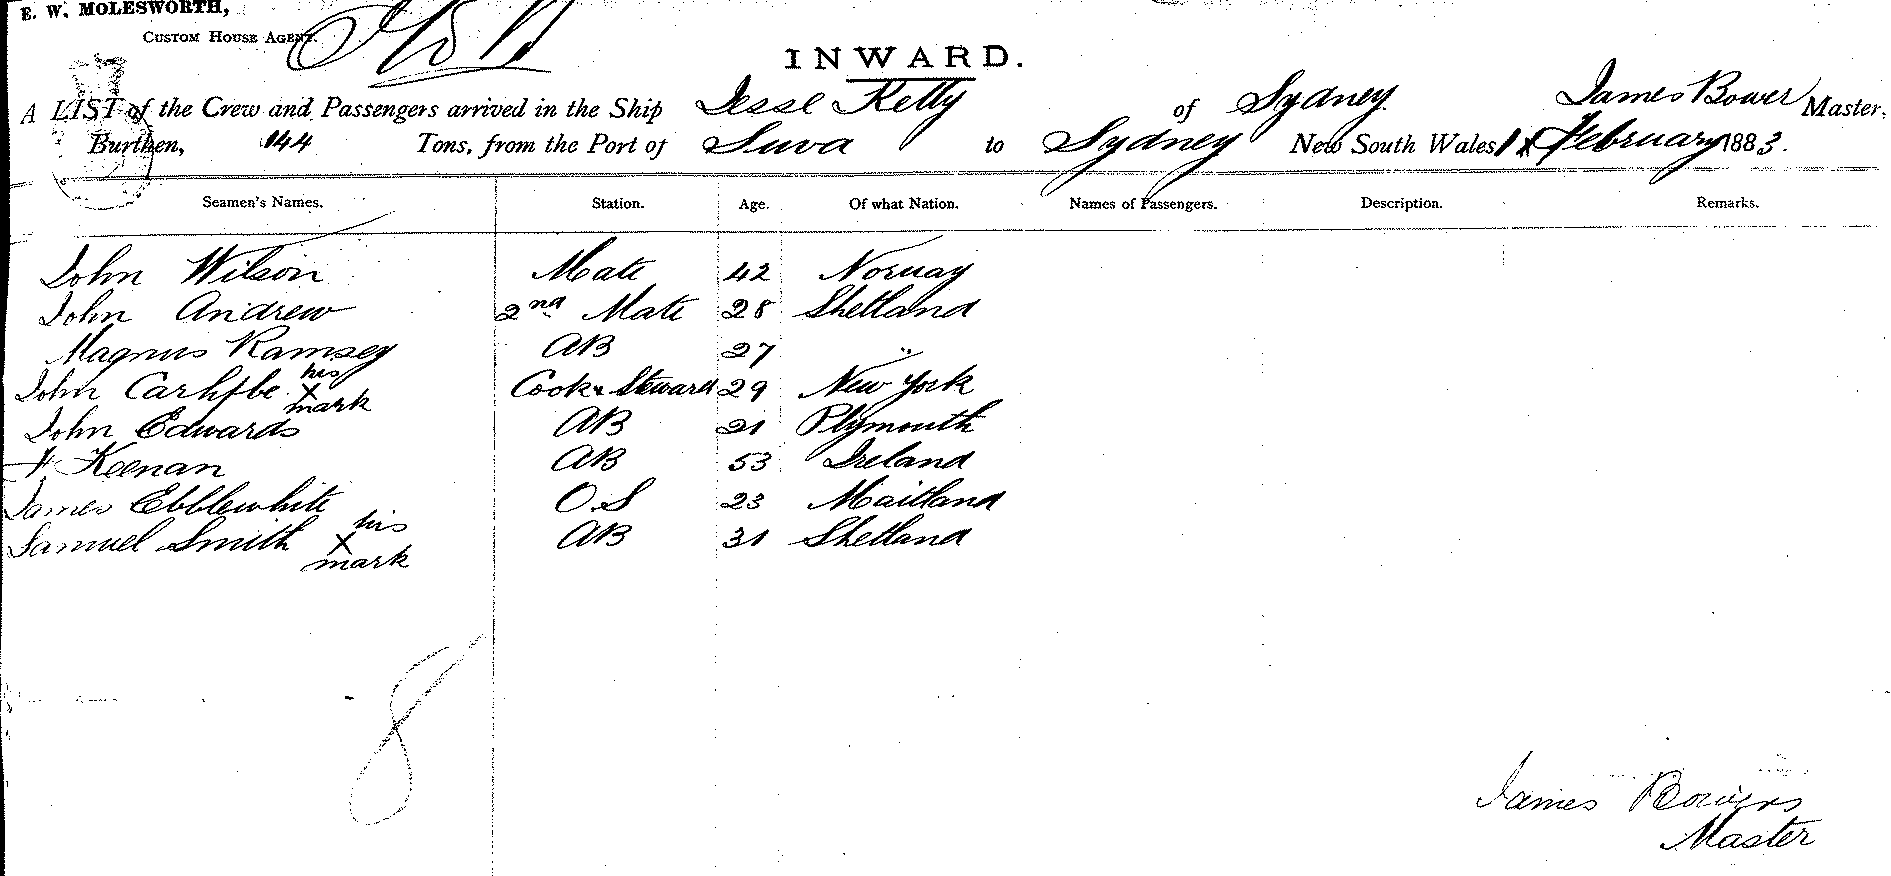 E. W. MOLESWORTH,
CUSTOM HOUSE AGENT.
INWARD.
A LIST of the Crew and Passengers arrived in the Ship Jesse Kelly of Sydney James Bower Master,
Burthen, 144 Tons, from the Port of Suva to Sydney New South Wales 1st February 1883.
Seamen's Names. Station. Age. Of what Nation. Names of Passengers. Description. Remarks.
John Wilson Mate 42 Norway
John Andrew 2nd Mate 28 Shetland
Magnus Ramsey AB 27 "
John his X mark Cook & Steward 29 New York
John Edwards AB 21 Plymouth
Keenan AB 53 Ireland
James Ebblewhite OS 23 Maitland
Samuel Smith his X mark AB 31 Shetland
8
James Bowers
Master